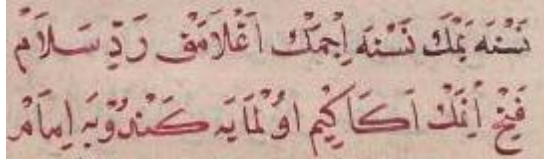 نَسْنَه يَمَكْ نَسْنَه اِجْمَكْ اَغْلَامَقْ رَدِّ سَلَامْ
اَنِنْكْ اَكَا كِيمْ اوُلْمَايَه كَنْدُوُيَه اِمَامْ